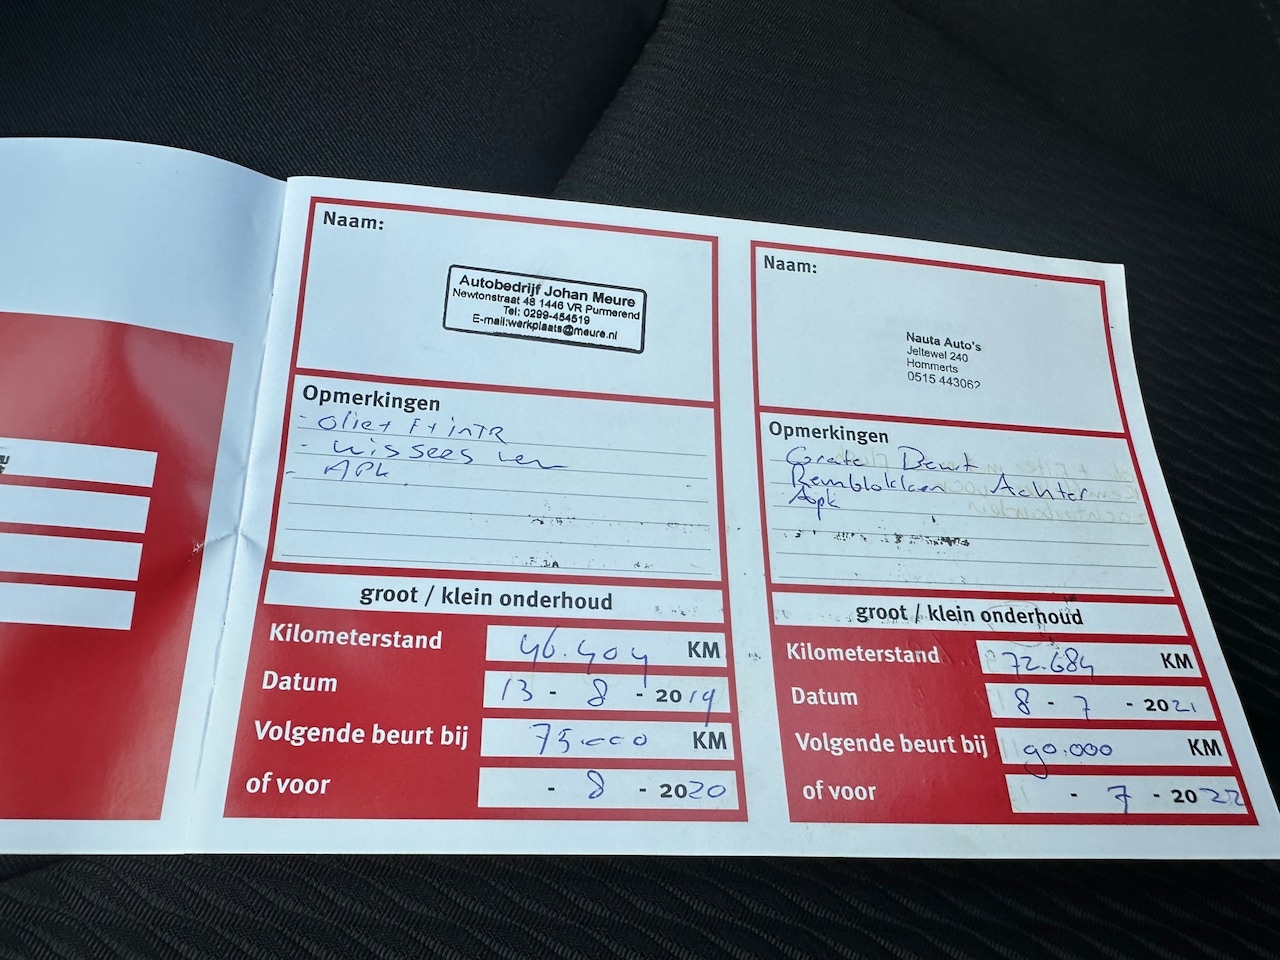 Naam:
Autobedrijf Johan Meure
Newtonstraat 48 1446 VR Purmerend
Tel: 0299-454519
E-mail:werkplaats@meure.nl
Opmerkingen
- olie+ F+inTR
- wissees ver
- APK
groot / klein onderhoud
Kilometerstand 46.404 KM
Datum 13 - 8 - 2019
Volgende beurt bij 75.000 KM
of voor - 8 - 2020
Naam:
Nauta Auto's
Jeltewel 240
Hommerts
0515 443062
Opmerkingen
Grote Beurt
Remblokken Achter
Apk
groot / klein onderhoud
Kilometerstand 72.684 KM
Datum 8 - 7 - 2021
Volgende beurt bij 90.000 KM
of voor - 7 - 2022